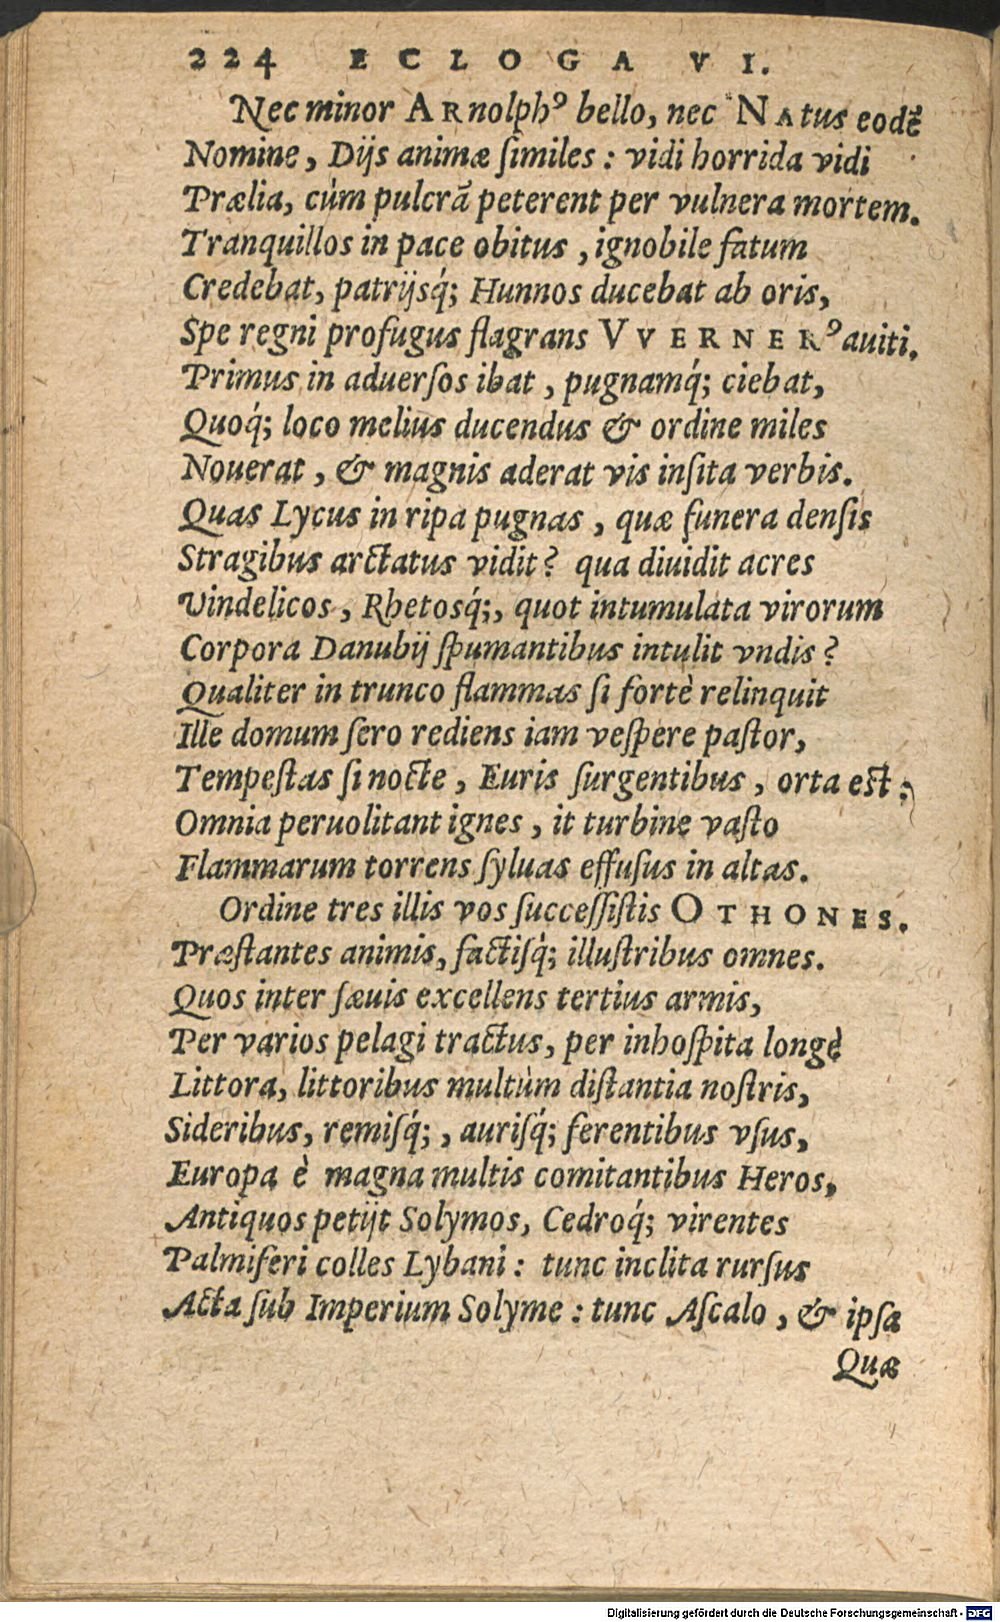 224 ECLOGA VI.
Nec minor ARnolphꝰ bello, nec NAtus eodē
Nomine, Dijs animæ ſimiles: vidi horrida vidi
Prælia, cùm pulcrã peterent per vulnera mortem.
Tranquillos in pace obitus, ignobile fatum
Credebat, patrijsq́; Hunnos ducebat ab oris,
Spe regni profugus flagrans VVERNERꝰ auiti.
Primus in aduerſos ibat, pugnamq́; ciebat,
Quoq́; loco melius ducendus & ordine miles
Nouerat, & magnis aderat vis inſita verbis.
Quas Lycus in ripa pugnas, quæ funera denſis
Stragibus arctatus vidit? qua diuidit acres
Vindelicos, Rhetosq́;, quot intumulata virorum
Corpora Danubij ſpumantibus intulit vndis?
Qualiter in trunco flammas ſi fortè relinquit
Ille domum ſero rediens iam veſpere paſtor,
Tempeſtas ſi nocte, Euris ſurgentibus, orta eſt:
Omnia peruolitant ignes, it turbine vaſto
Flammarum torrens ſyluas effuſus in altas.
Ordine tres illis vos ſucceſſiſtis OTHONES.
Præſtantes animis, factiſq́; illuſtribus omnes.
Quos inter ſæuis excellens tertius armis,
Per varios pelagi tractus, per inhoſpita longè
Littora, littoribus multùm diſtantia noſtris,
Sideribus, remiſq́;, auriſq́; ferentibus vſus,
Europa è magna multis comitantibus Heros,
Antiquos petijt Solymos, Cedroq́; virentes
Palmiferi colles Lybani: tunc inclita rurſus
Acta ſub Imperium Solyme: tunc Aſcalo, & ipſa
Quæ
Digitalisierung gefördert durch die Deutsche Forschungsgemeinschaft - DFG